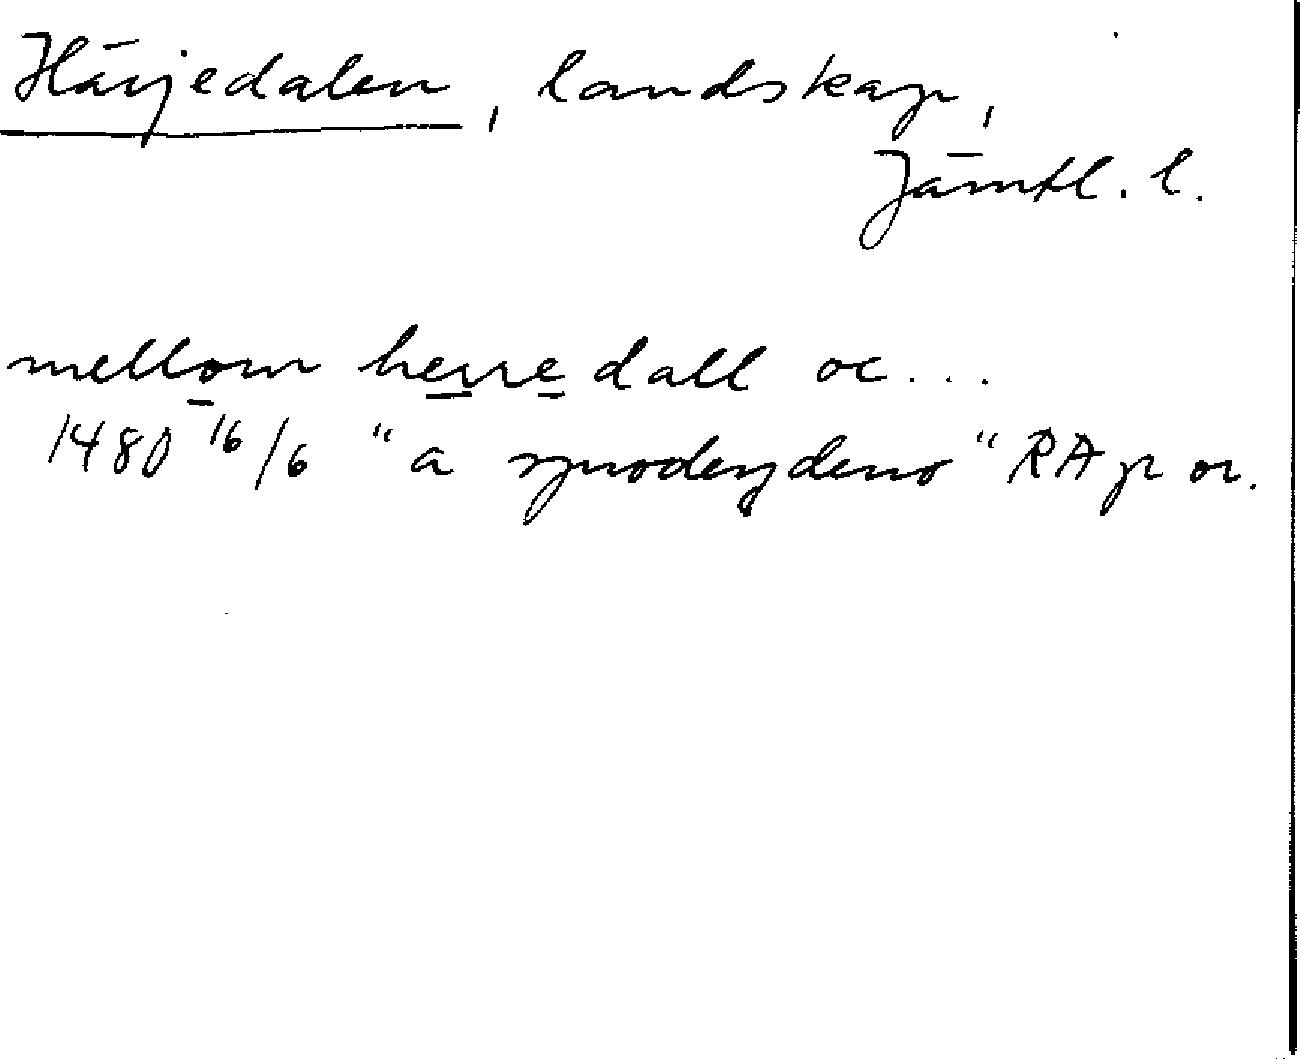 Härjedalen, landskap,
Jämtl. l.
mellom herredall oc...
1480 16/6 "a synodesydens" RAp or.